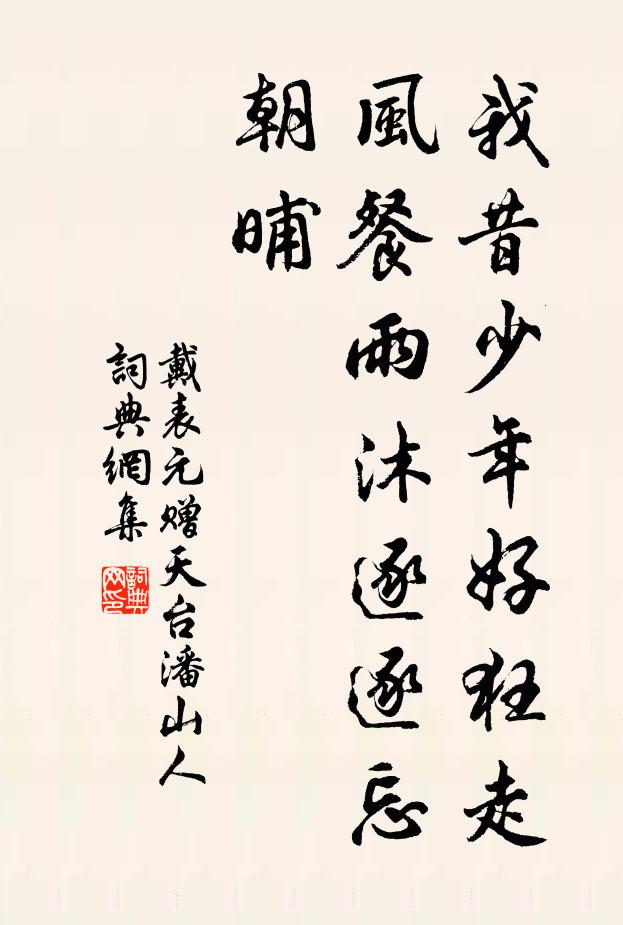 我昔少年好狂走
風餐雨沐逐逐忘
朝晡
戴表元赠天台潘山人
詞典網集
詞典網印